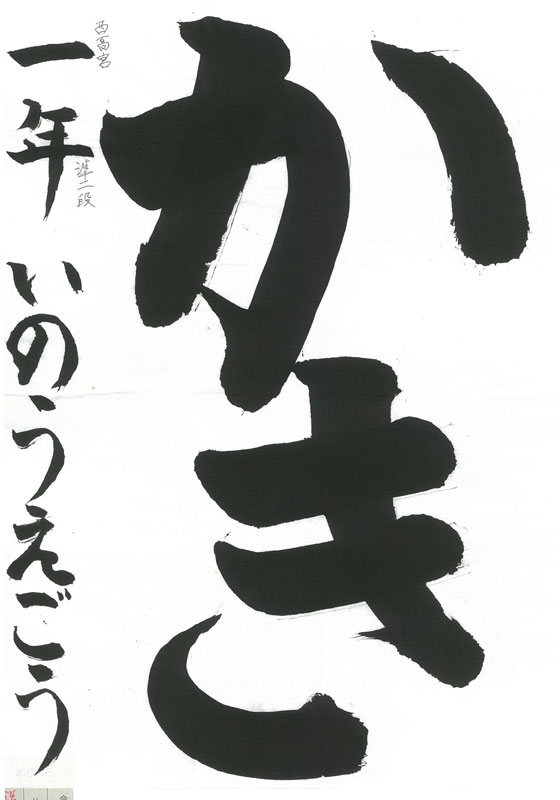 かき
西高宮
一年 いのうえごう
準二段